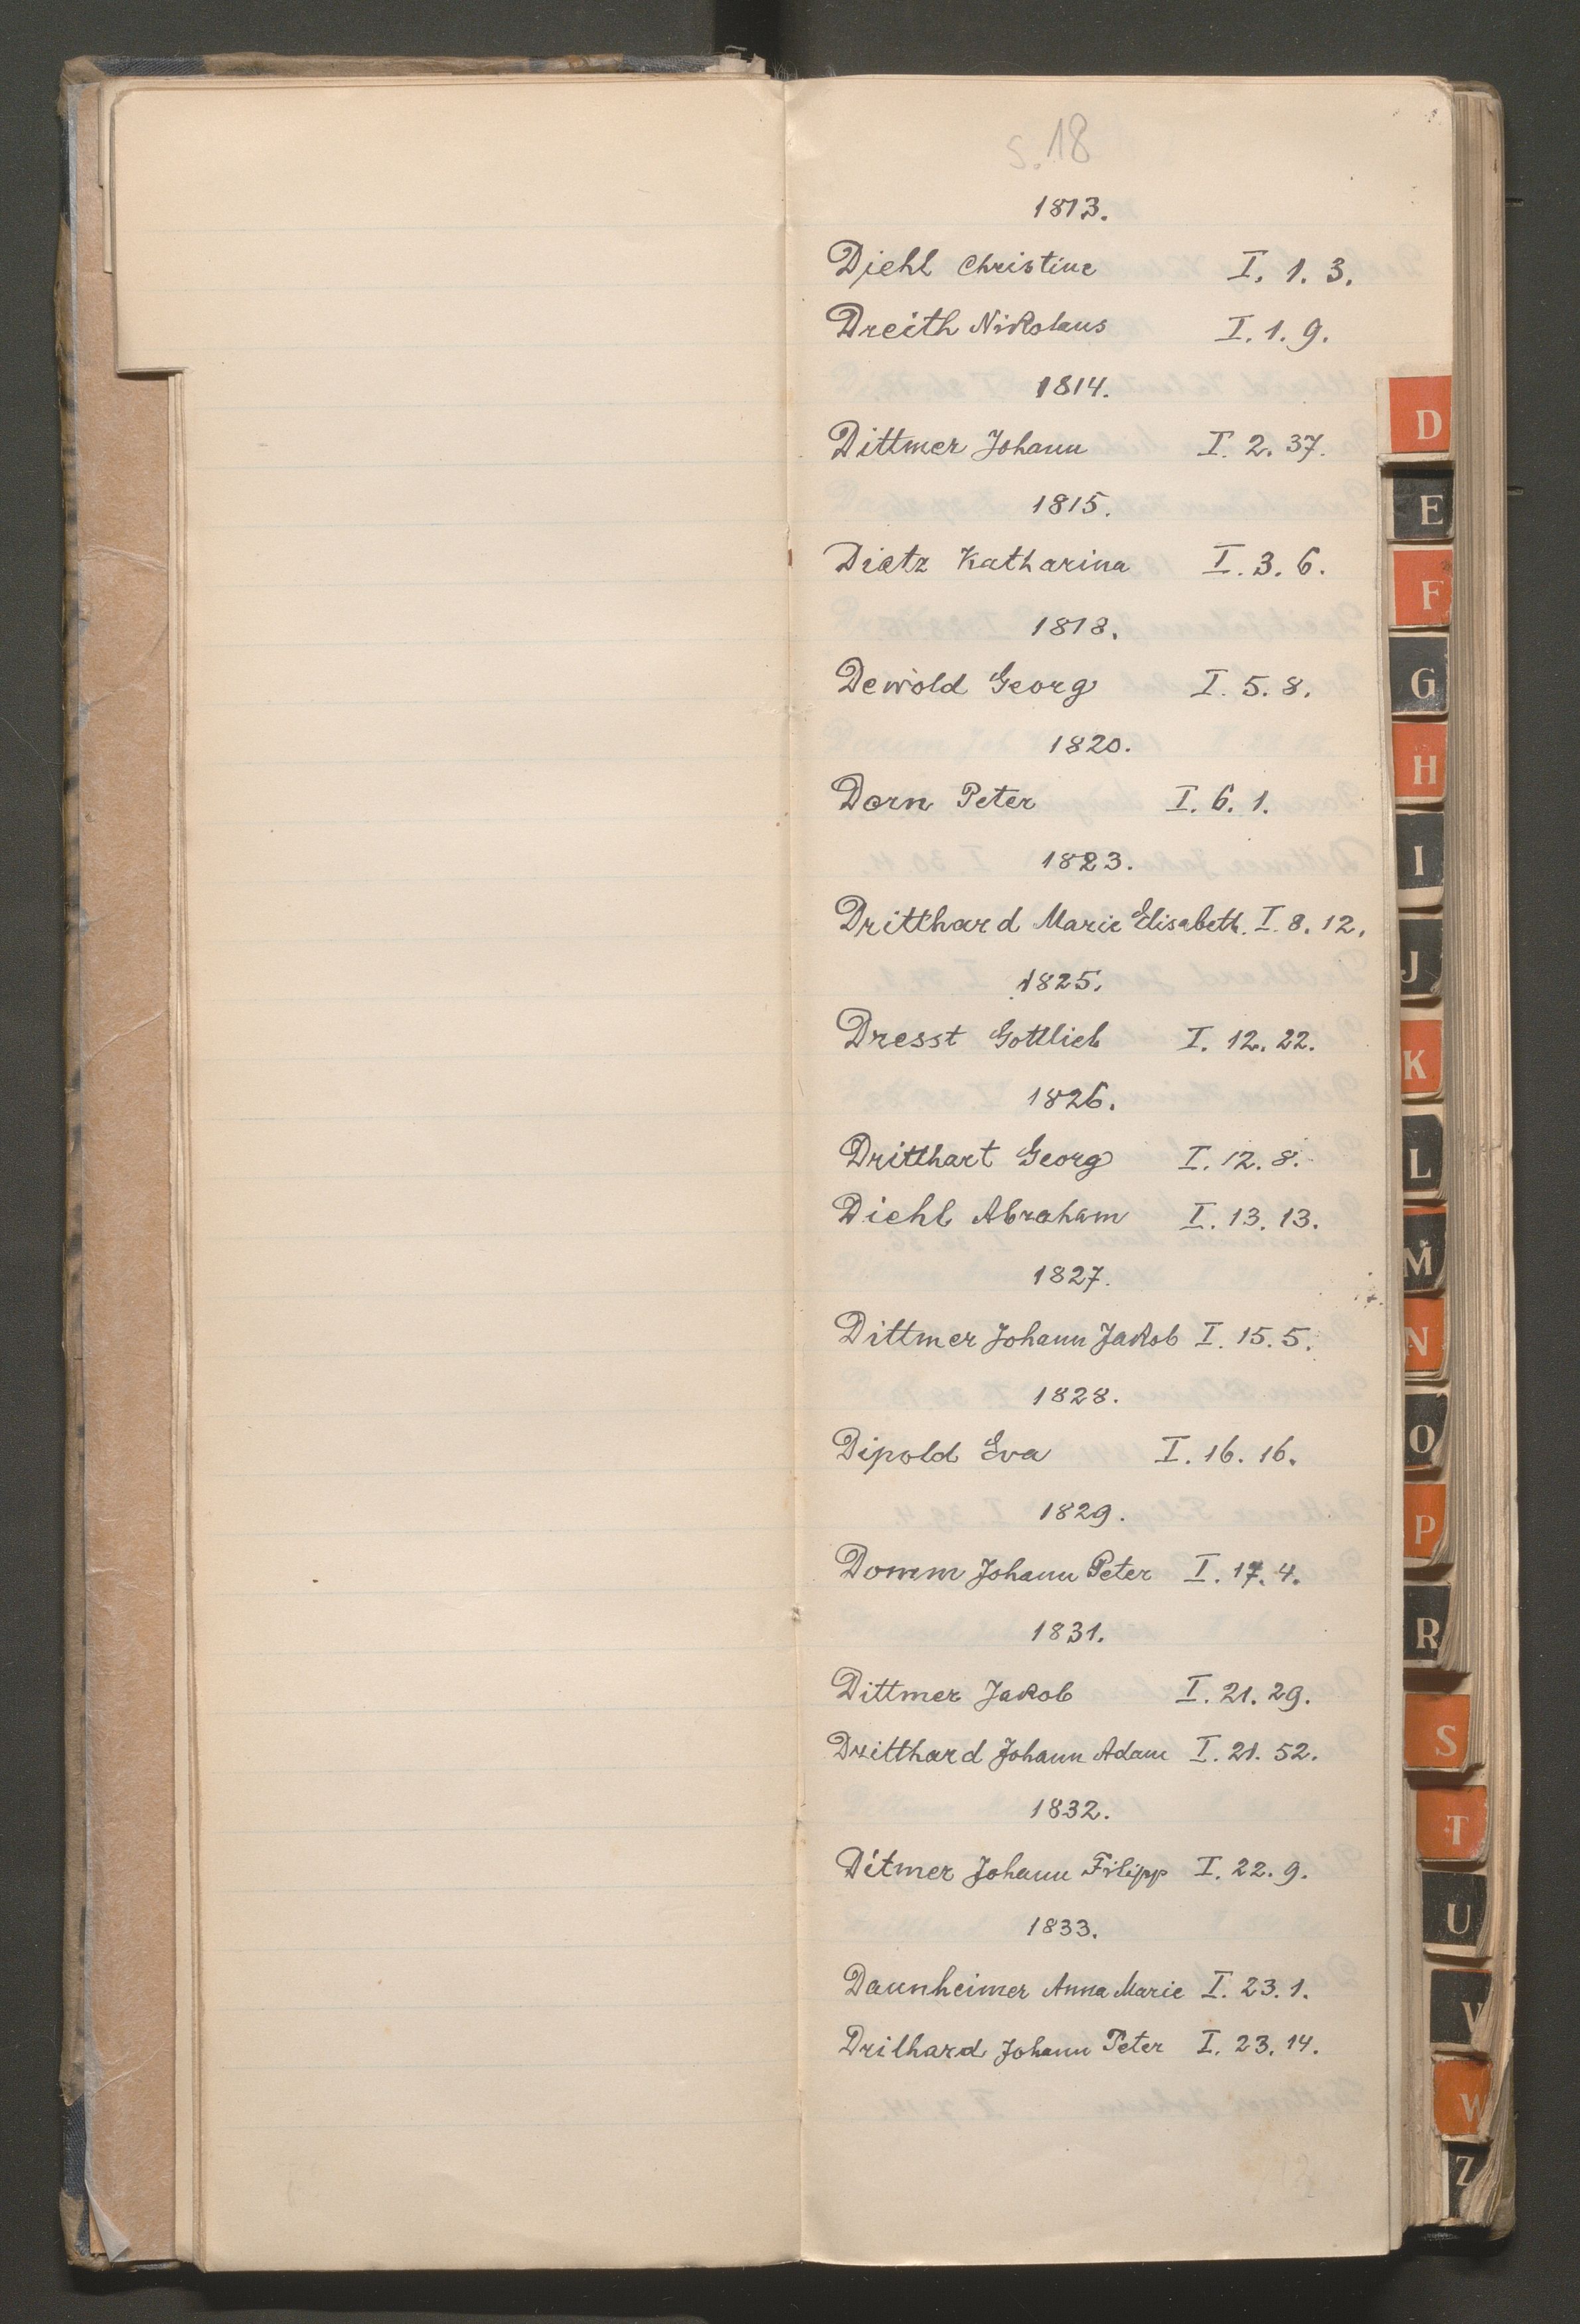 S. 18
1813.
Diehl Christine I. 1. 3.
Dreith Nikolaus I. 1. 9.
1814.
Dittmer Johann I. 2. 37.
1815.
Dietz Katharina I. 3. 6.
1818.
Dewold Georg I. 5. 8.
1820.
Dorn Peter I. 6. 1.
1823.
Dritthard Marie Elisabeth. I. 8. 12.
1825.
Dresst Gottlieb I. 12. 22.
1826.
Dritthart Georg I. 12. 8.
Diehl Abraham I. 13. 13.
1827.
Dittmer Johann Jakob I. 15. 5.
1828.
Dipold Eva I. 16. 16.
1829.
Domm Johann Peter I. 17. 4.
1831.
Dittmer Jakob I. 21. 29.
Dritthard Johann Adam I. 21. 52.
1832.
Ditmer Johann Filipp I. 22. 9.
1833.
Daunheimer Anna Marie I. 23. 1.
Drithard Johann Peter I. 23. 14.
D
E
F
G
H
I
J
K
L
M
N
O
P
R
S
T
U
V
W
Z